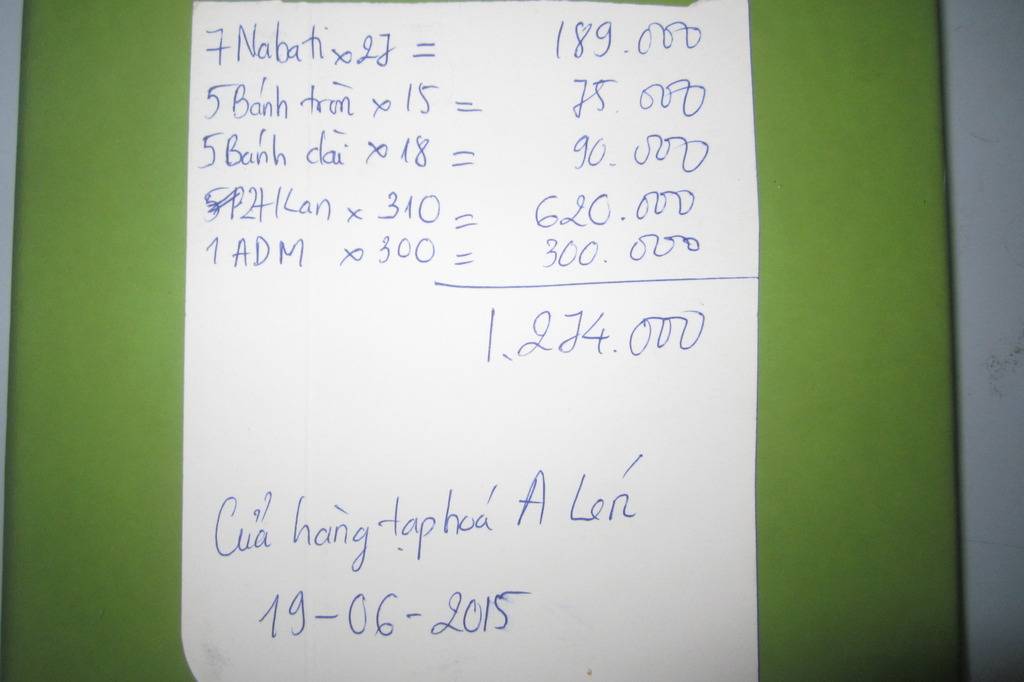 7 Nabati x 27 = 189.000
5 Bánh tròn x 15 = 75.000
5 Bánh dài x 18 = 90.000
2 x 310 = 620.000
1 ADM x 300 = 300.000
1.274.000
Cửa hàng tạp hoá A
19-06-2015